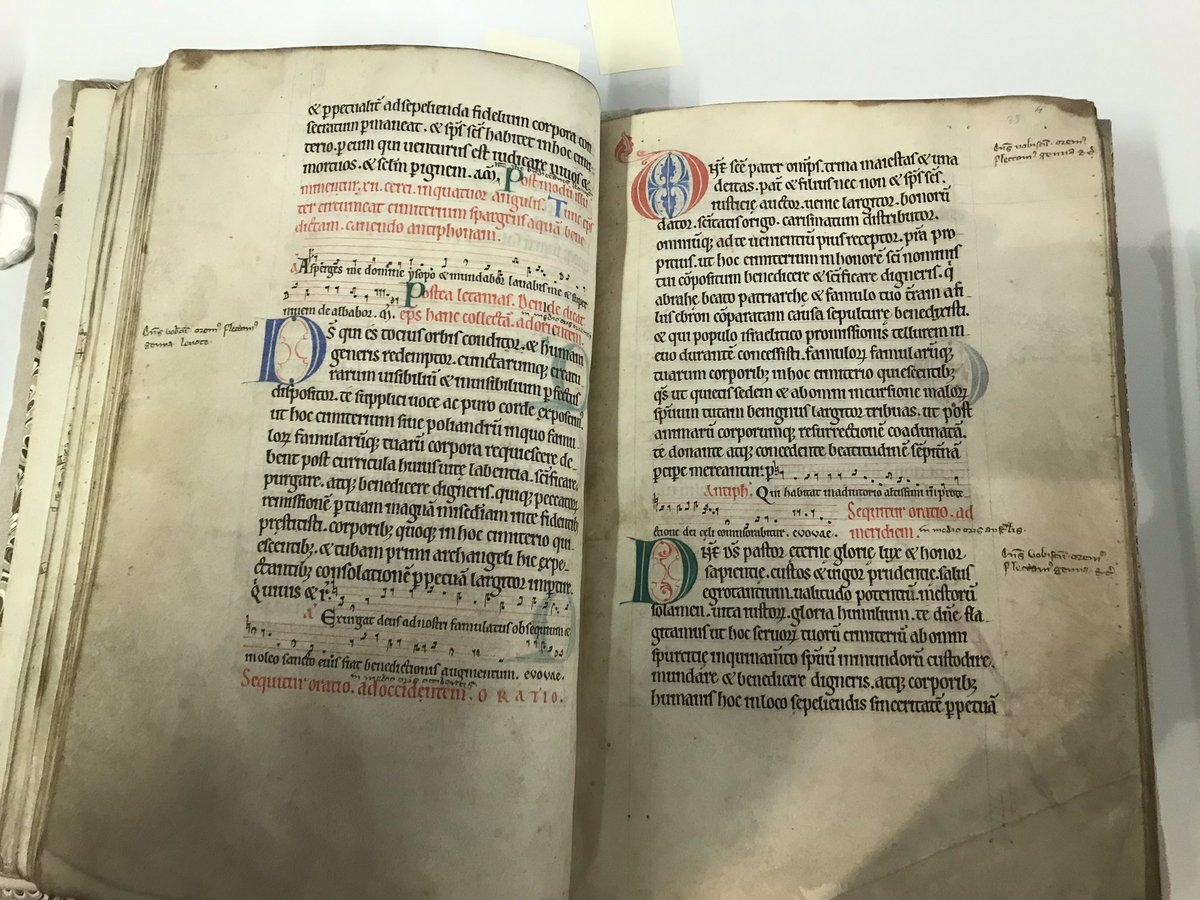 & ꝑpetualit̄ ad sepelienda fidelium corpora con
secratum ꝑmaneat. & sp̄s sc̄s habitet in hoc cimi
terio. ꝑ eum qui uenturus est iudicare uiuos &
mortuos. & sc̄lm ꝑ ignem. am̄.
Postmodū
minentur. xii. cerei. in quatuor angulis. Tunc ep̄s
ter circumeat cimiterium spargens aquā bene
dictam. canendo antiphonam.
a Asperges me domine ysopo & mundabor lauabis me & super
niuem de albabor.
Postea letanias. Deinde dicat
ep̄s hanc collectā. ad orientem
Dn̄s uobisc̄. orem̄. flectam̄
genua leuate.
Ds̄ qui es tocius orbis conditor. & humani
generis redemptor. cunctarumq; creatu
rarum uisibiliū & inuisibilium ꝑfectus
dispositor. te supplici uoce ac puro corde exposcim̄
ut hoc cimiterium siue poliandrū in quo famu
loꝝ famularūq; tuarū corpora requiescere de-
bent post curricula huius uite labentia. sc̄ificare.
purgare. atq; benedicere digneris. quiq; peccatoꝝ
remissionē ꝑ tuam magnā misc̄diam in te fidentib;
prestitisti. corporib; quoq; in hoc cimiterio qui-
escentib; & tubam primi archangeli hic expe-
ctantib; consolationē ꝑpetuā largitor imptire.
Qui uius & r̄.
a Exurgat deus ad nostri famulatus obsequium &
in oleo sancto eius fiat benedictionis augmentum. evovae.
Sequitur oratio. ad occidentem. ORATIO.
Dn̄s uobisc̄. orem̄.
flectam̄ genua
One sc̄e pater omp̄s. trina maiestas & una
deitas. pat̄ & filius nec non & sp̄s sc̄s.
iusticie auctor. uenie largitor. bonorū
dator. sc̄itatis origo. carismatum distributor.
omniūq; ad te uenientiū pius receptor. p̄ra pro
pitius. ut hoc cimiterium in honorē sc̄i nominis
tui cōpositum benedicere & sc̄ificare digneris. q̄
abrahe beato patriarche & famulo tuo t̄ram a fi
liis ebron cōparatam causa sepulture benedixisti.
& qui populo israelitico promissionis tellurem in
euo durante concessisti. famuloꝝ famularūq;
tuarum corporib; in hoc cimiterio quiescentib;
q̄s ut quietis sedem & ab omni incursione maloꝝ
sp̄uum tutam benignus largitor tribuas. ut post
animarū corporumq; resurrectionē coadunatā.
te donante atq; concedente beatitudinē sempiternā
ꝑcipe mereantur. ꝑ
Antiph̄. Qui habitat in adiutorio altissimi in prote
ctione dei celi commorabitur. evovae.
Sequitur oratio. ad
meridiem.
Dn̄s uobisc̄. orem̄.
flectam̄ genua
Dn̄e ds̄ pastor eterne glorie lux & honor
sapientie. custos & uigor prudentie. salus
egrotantium. ualitudo potentiū. mestorū
solamen. uita iustoꝝ. gloria humilium. te dn̄e fla
gitamus ut hoc seruoꝝ tuorū cimiteriū ab omni
spurcitie inquinam̄to sp̄uū inmundorū custodire.
mundare & benedicere digneris. atq; corporib;
humanis hoc in loco sepeliendis sinceritatē ꝑpetuā